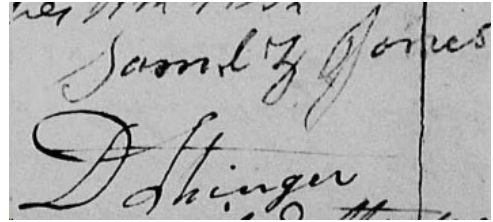 Saml Z Jones
D Shinger